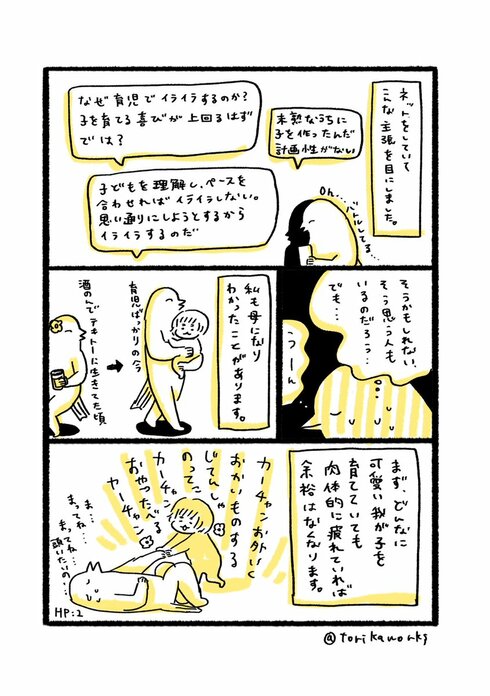 ネットをしていて
こんな主張を目にしました。
未熟なうちに
子を作ったんだ
計画性がない
なぜ育児でイライラするのか?
子を育てる喜びが上回るはず
では?
子どもを理解し、ペースを
合わせればイライラしない。
思い通りにしようとするから
イライラするのだ
Oh…
バトルしてる…
そうかもしれない、
そう思う人も
いるのだろう…
でも…
うーん
私も母になり
わかったことがあります。
育児ばっかりの今
酒のんでテキトーに生きてた頃
まず、どんなに
可愛い我が子を
育てていても
肉体的に疲れていれば
余裕はなくなります。
カーチャンお外いく
おかいものする
じてんしゃ
のってこ
カーチャ
おやつたべる
カーチャン
ま…
まってね…
まってね…
頭いたいの…
HP:2
@torikaworks